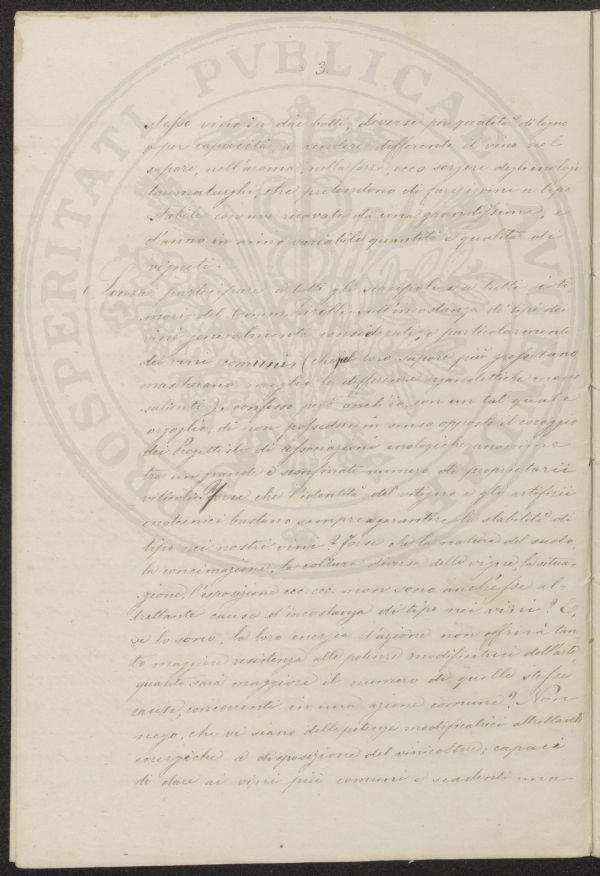 3.
stesso vino in due botti, diverse per qualità di legno
o per capacità, a rendere differente il vino nel
sapore, nell'aroma, nella forza, ecco sorgere degli enologi
taumaturghi, che pretendono di fare i vini a tipo
stabile con uve ricavate da una grandissima, e
d'anno in anno variabile quantità e qualità di
vigneti.
Senza partecipare a tutti gli scrupoli e a tutti i ti
mori del sull'incostanza di tipo dei
vini generalmente considerati, e particolarmente
dei vini comuni, (che pel loro sapore più grossolano
mascherano meglio le differenze organolettiche meno
salienti); confesso però anch'io, con un tal quale
orgoglio, di non possedere in senso opposto il coraggio
dei Progettisti di associazioni enologiche anonime
tra un grande e sconfinato numero di proprietarii
viticoli. Forse che l'identità del vitigno e gli artifizii
enotecnici bastano sempre a garantire la stabilità di
tipo nei nostri vini? Forse che la natura del suolo,
la concimazione, la coltura diversa delle vigne, la situa-
zione, l'esposizione ecc. ecc. non sono anch'esse al-
trettante cause d'incostanza di tipo nei vini? E,
se lo sono, la loro energia d'azione non offrirà tan-
to maggiore resistenza alle potenze modificatrici dell'arte
quanto sarà maggiore il numero di quelle stesse
cause, concorrenti in una azione comune? Non
nego, che vi siano delle potenze modificatrici altrettanto
energiche a disposizione del vinicoltore; capaci
di dare ai vini più comuni e scadenti una
PROSPERITATI PVBLICAE